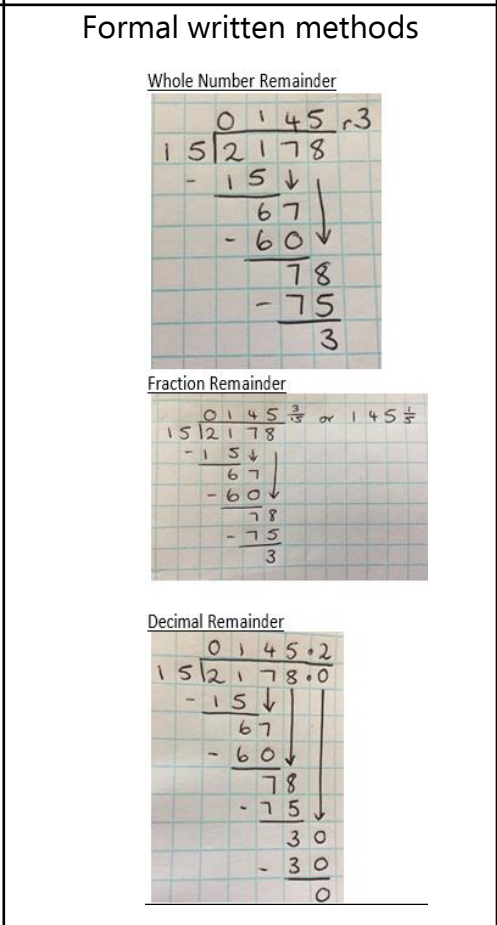 Formal written methods
Whole Number Remainder
0 1 4 5 r3
1 5 2 1 7 8
- 1 5 ↓
6 7
- 6 0 ↓
7 8
- 7 5
3
Fraction Remainder
0 1 4 5 3/15 or 1 4 5 1/5
1 5 2 1 7 8
- 1 5 ↓
6 7
- 6 0 ↓
7 8
- 7 5
3
Decimal Remainder
0 1 4 5 . 2
1 5 2 1 7 8 . 0
- 1 5 ↓
6 7
- 6 0 ↓
7 8
- 7 5 ↓
3 0
- 3 0
0